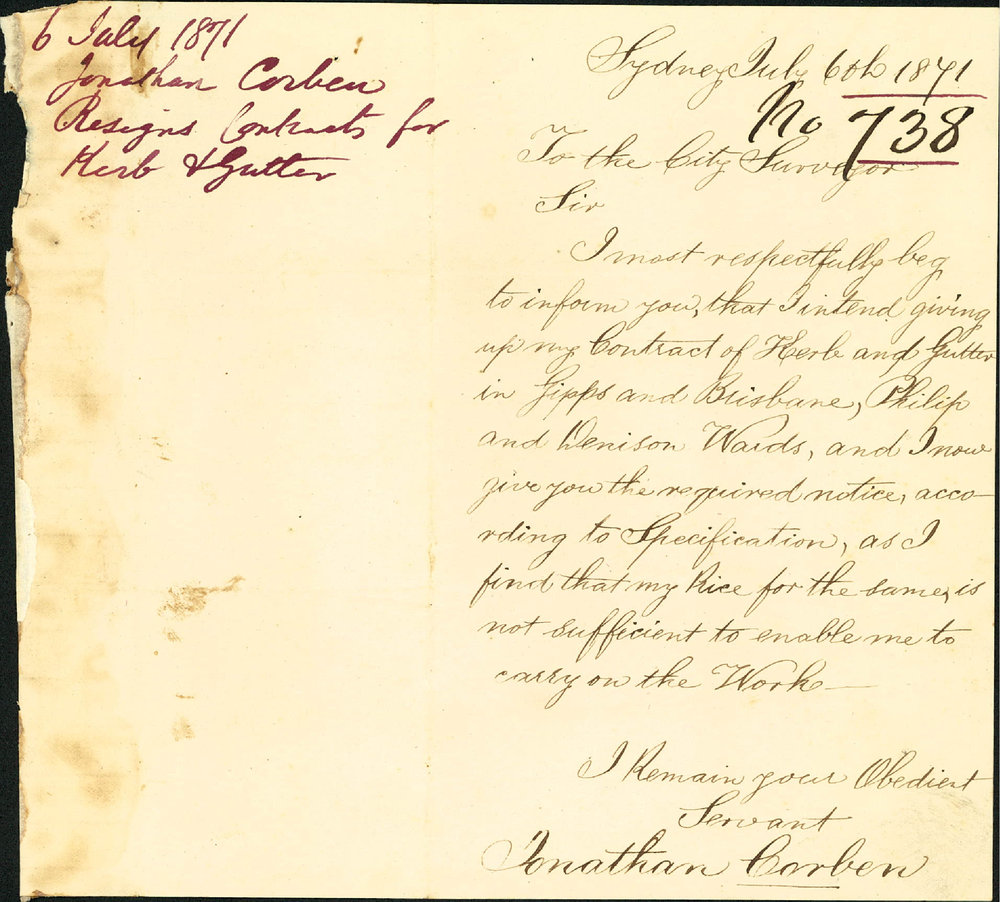 6 July 1871
Jonathan Corben
Resigns Contracts for
Kerb & Gutter
Sydney July 6th 1871
No 738
To the City Surveyor
Sir
I most respectfully beg
to inform you, that I intend giving
up my Contract of Kerb and Gutter
in Gipps and Brisbane, Philip
and Denison Wards, and I now
give you the required notice, acco-
rding to Specification, as I
find that my Price for the same, is
not sufficient to enable me to
carry on the Work—
I Remain your Obedient
Servant
Jonathan Corben